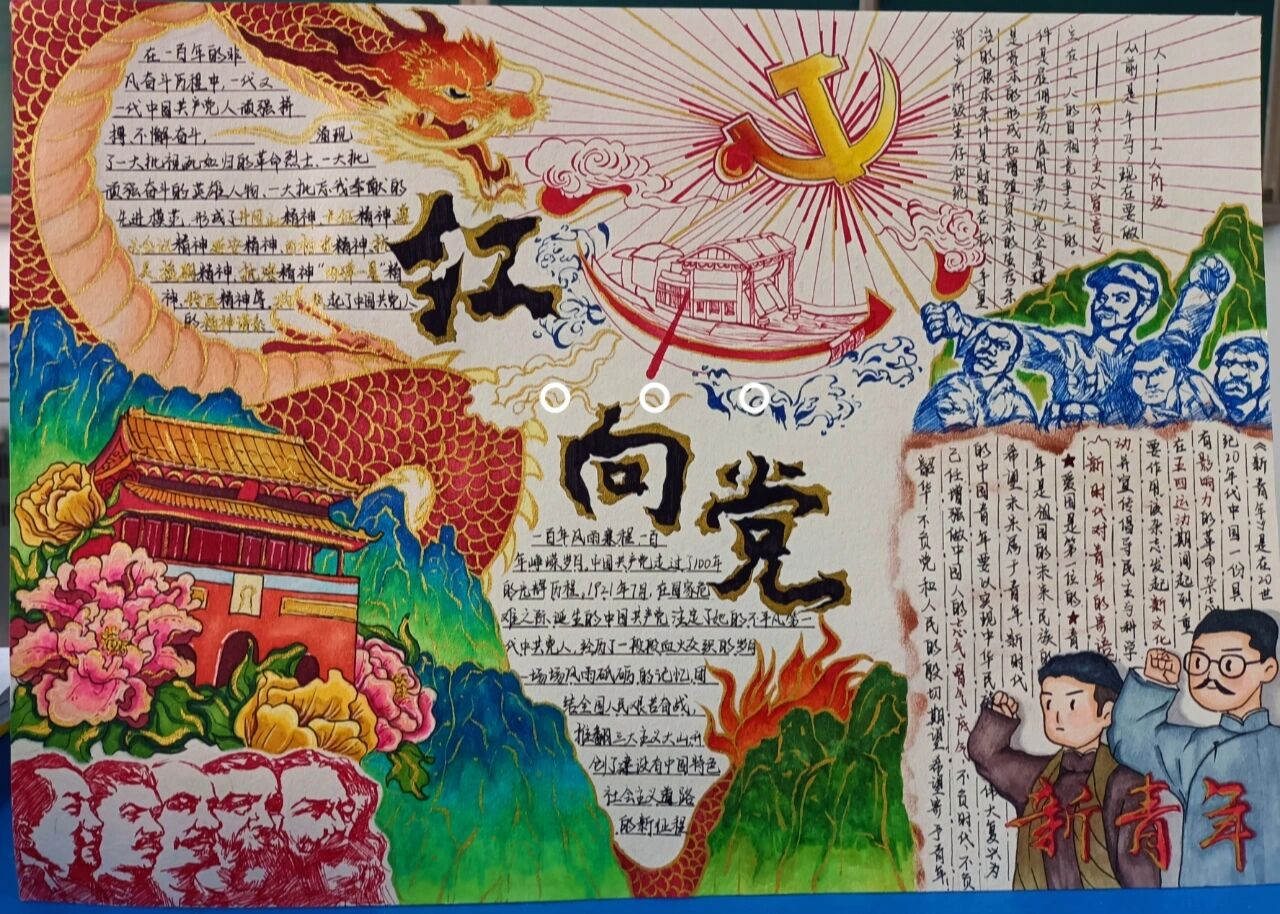 在一百年的非
凡奋斗历程中,一代又
一代中国共产党人顽强拼
搏,不懈奋斗, 涌现
了一大批视死如归的革命烈士、一大批
顽强奋斗的英雄人物、一大批忘我奉献的
先进模范,形成了井冈山精神、长征精神、遵
义会议精神、延安精神、西柏坡精神、抗
美援朝精神、精神、"两弹一星"精
神、特区精神等, 起了中国共产党人
的精神谱系
红
向
党
一百年风雨兼程,一百
年峥嵘岁月,中国共产党走过了100年
的光辉历程,1921年7月,在国家危
难之际诞生的中国共产党注定了她的不平凡,第一
代中共党人,经历了一段段血火交织的岁月
一场场风雨砥砺的记忆,团
结全国人民艰苦奋战,
推翻三大主义大山,开
创了建设有中国特色
社会主义道路
的新征程
资产阶级生存和统
治的根本条件是财富在私人手里
是资本的形成和增殖资本的生存条
件是雇佣劳动雇佣劳动完全是建
立在工人的自相竞争之上的。
——《共产主义宣言》
从前是牛马,现在要做
人————工人阶级
《新青年》是在20世
纪20年代中国一份具
有影响力的革命杂志
在五四运动期间起到重
要作用该杂志发起新文化
动并宣传倡导民主与科学
新时代对青年的寄语
★爱国是第一位的★青
年是祖国的未来民族的
希望未来属于青年新时代
的中国青年要以实现中华民族伟大复兴为
己任增强做中国人的志气骨气底气,不负时代,不负
韶华,不负党和人民的殷切期望,希望寄于青年
新青年